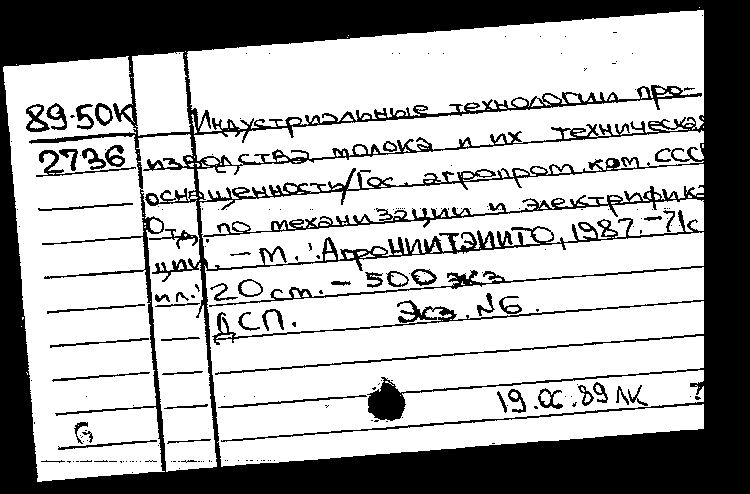 89-50К
2736
Индустриальные технологии про-
изводства молока и их техническая
оснащенность/Гос. агропром. ком. СССР
Отд. по механизации и электрифика
ции. - М.: АгроНИИТЭИИТО, 1987. - 71с
ил.; 20 см. - 500 экз
ДСП. Экз. №6.
19.06.89 ЛК 7
6